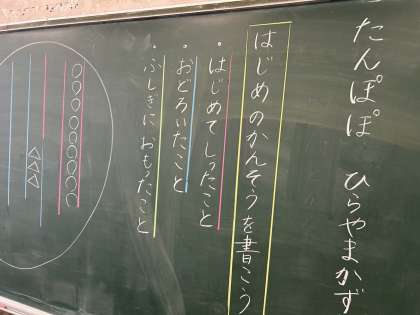 たんぽぽ ひらやまかず
はじめのかんそうを書こう
・はじめてしったこと
・おどろいたこと
・ふしぎに、おもったこと
○○○○○○○○○
△△△